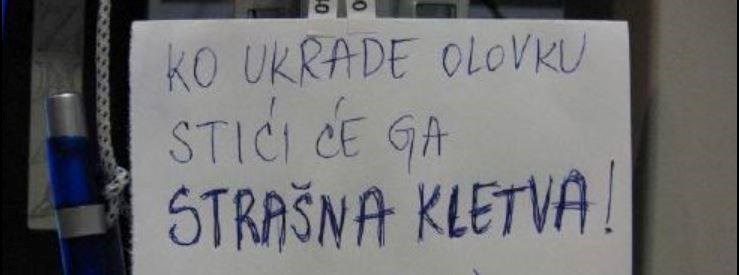 KO UKRADE OLOVKU
STIĆI ĆE GA
STRAŠNA KLETVA!